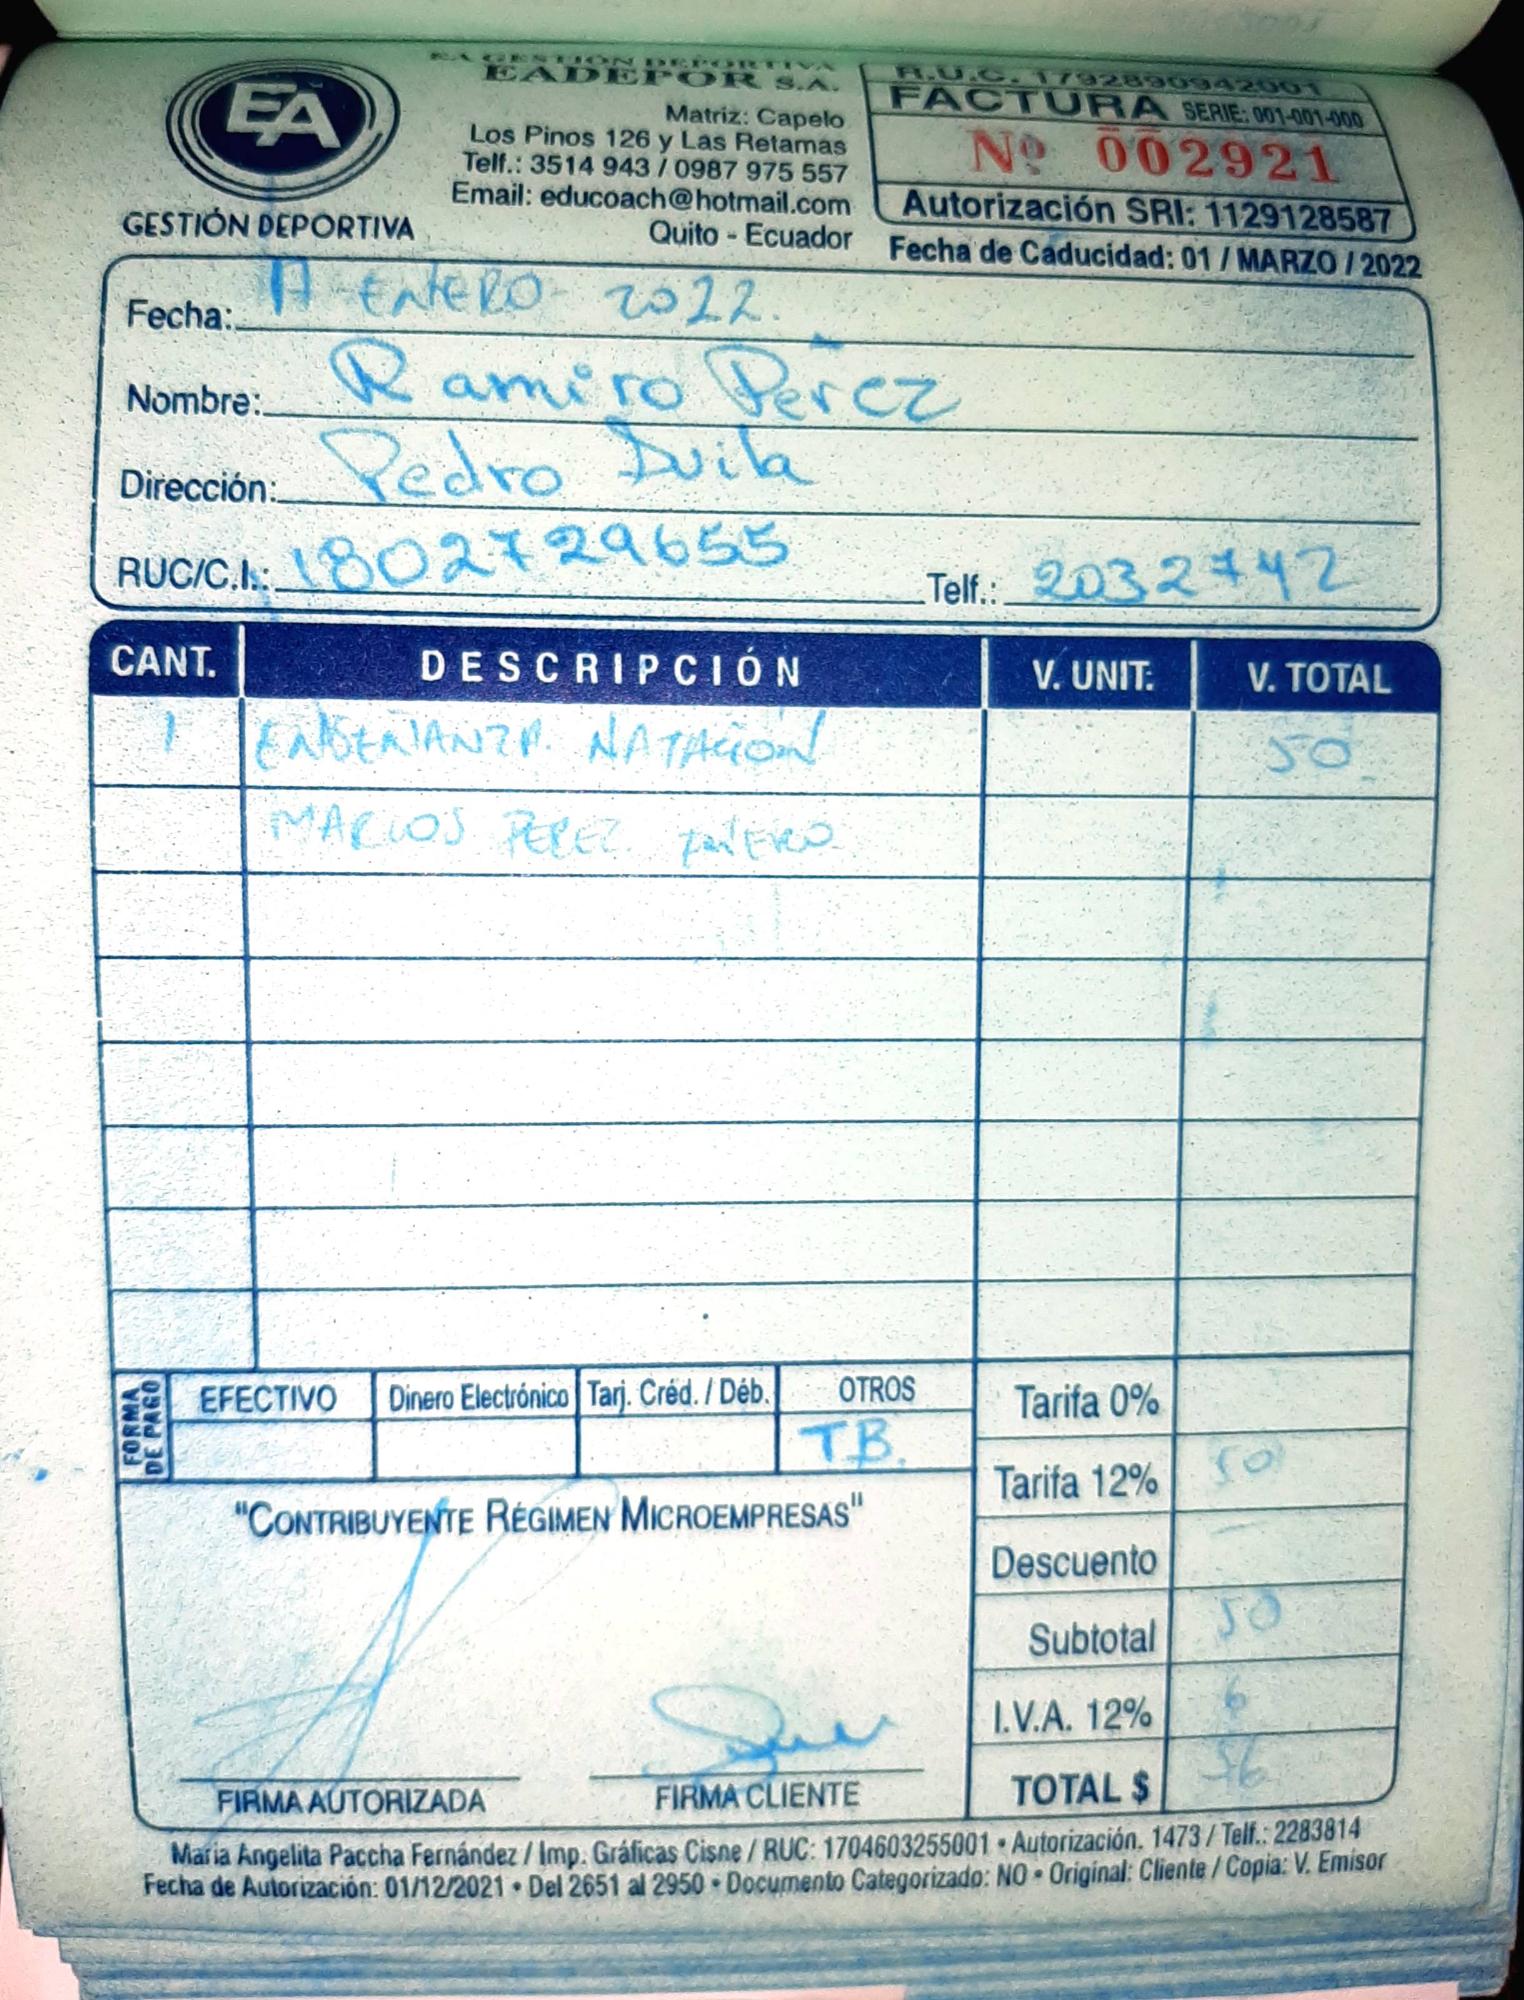 EA
GESTIÓN DEPORTIVA
EA GESTIÓN DEPORTIVA
EADEPOR S.A.
Matriz: Capelo
Los Pinos 126 y Las Retamas
Telf.: 3514 943 / 0987 975 557
Email: educoach@hotmail.com
Quito - Ecuador
R.U.C. 1792890942001
FACTURA SERIE: 001-001-000
Nº 002921
Autorización SRI: 1129128587
Fecha de Caducidad: 01 / MARZO / 2022
Fecha: ENERO - 2022.
Nombre: Ramiro Pérez
Dirección: Pedro
RUC/C.I.: 1802729655 Telf.: 2032742
CANT. DESCRIPCIÓN V. UNIT. V. TOTAL
1 ENSEÑANZA NATACIÓN 50
PEREZ ENERO
FORMA DE PAGO
EFECTIVO Dinero Electrónico Tarj. Créd. / Déb. OTROS
T.B.
Tarifa 0%
Tarifa 12% 50
Descuento —
Subtotal 50
I.V.A. 12% 6
TOTAL $ 56
"CONTRIBUYENTE RÉGIMEN MICROEMPRESAS"
FIRMA AUTORIZADA FIRMA CLIENTE
María Angelita Paccha Fernández / Imp. Gráficas Cisne / RUC: 1704603255001 • Autorización. 1473 / Telf.: 2283814
Fecha de Autorización: 01/12/2021 • Del 2651 al 2950 • Documento Categorizado: NO • Original: Cliente / Copia: V. Emisor